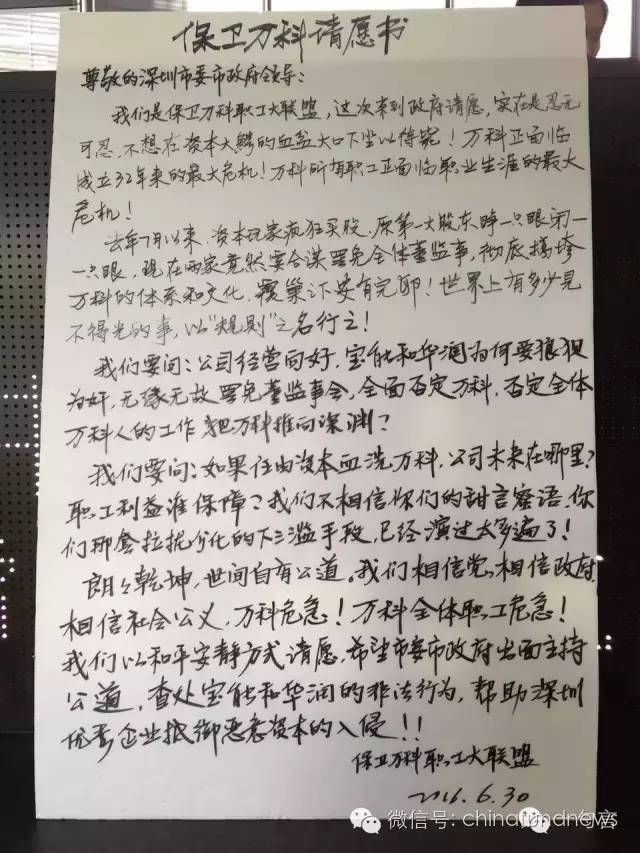 保卫万科请愿书
尊敬的深圳市委市政府领导：
我们是保卫万科职工大联盟，这次来到政府请愿，实在是忍无
可忍，不想在资本大鳄的血盆大口下坐以待毙！万科正面临
成立32年来的最大危机！万科所有职工正面临职业生涯的最大
危机！
去年7月以来，资本玩家疯狂买股，原第一大股东睁一只眼闭
一只眼，现在两家竟然要合谋罢免全体董监事，彻底搞垮
万科的体系和文化，覆巢之下安有完卵！世界上有多少见
不得光的事，以“规则”之名行之！
我们要问：公司经营向好，宝能和华润为何要狼狈
为奸，无缘无故罢免董监事会，全面否定万科，否定全体
万科人的工作，把万科推向深渊？
我们要问：如果任由资本血洗万科，公司未来在哪里？
职工利益谁保障？我们不相信你们的甜言蜜语，你
们那套拉拢分化的下三滥手段，已经演过太多遍了！
朗朗乾坤，世间自有公道。我们相信党，相信政府，
相信社会公义，万科危急！万科全体职工危急！
我们以和平安静方式请愿，希望市委市政府出面主持
公道，查处宝能和华润的非法行为，帮助深圳
优秀企业抵御恶意资本的入侵！！
保卫万科职工大联盟
2016.6.30
微信号: chinafundnews